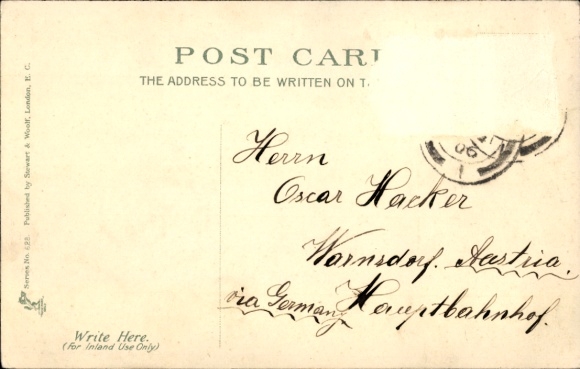 POST CARD
THE ADDRESS TO BE WRITTEN ON T
Series No. 422. Published by Stewart & Woolf, London, E. C.
06
Herrn
Oscar Hacker
Warnsdorf. Austria.
via Germany Hauptbahnhof.
Write Here.
(For Inland Use Only)